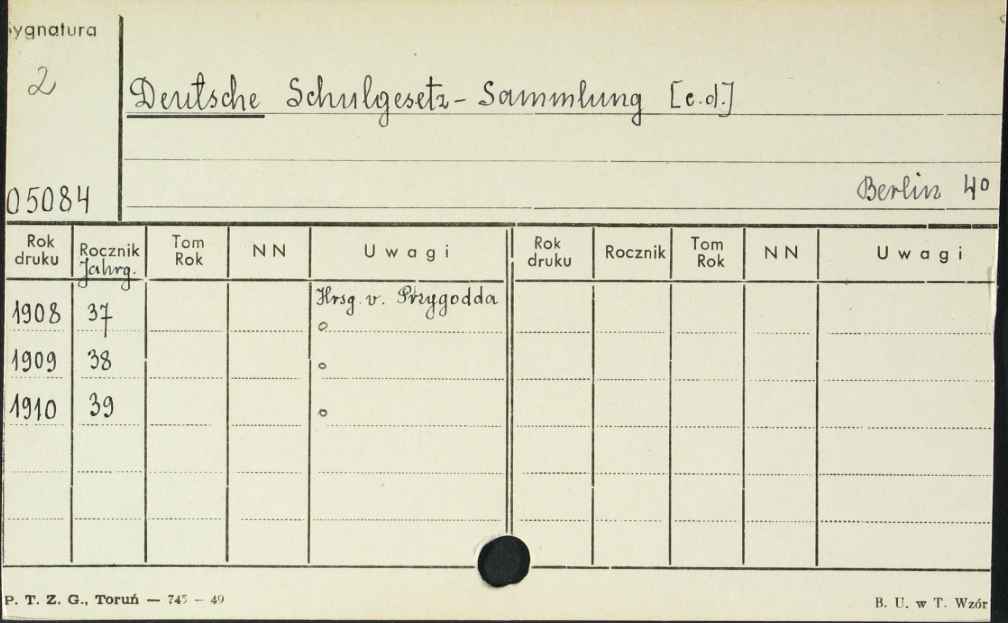 Sygnatura
2
Deutsche Schulgesetz-Sammlung [c.d.]
05084
Berlin 4°
Rok druku Rocznik Jahrg. Tom Rok NN Uwagi Rok druku Rocznik Tom Rok NN Uwagi
Hrsg. v. Przygodda
1908 37 o
1909 38 o
1910 39 o
P. T. Z. G., Toruń — 745 — 49
B. U. w T. Wzór